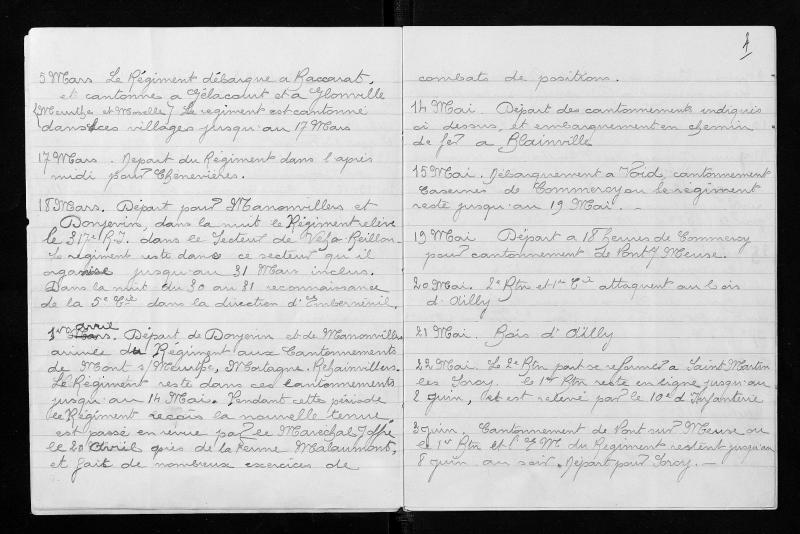 5 Mars Le Régiment débarque a Baccarat,
et cantonne a Gélacourt et a Glonville
(Meurthe et Moselle) Le regiment est cantonné
dans ces villages jusqu'au 17 Mars
17 Mars. Depart du Régiment dans l'après
midi pour Chenevières.
18 Mars. Départ pour Manonvillers et
Domjevin, dans la nuit le Régiment relève
le 317e R.I. dans le Secteur de Vého-Reillon-
Le régiment reste dans ce secteur qu'il
organise jusqu'au 31 Mars inclus.
Dans la nuit du 30 au 31 reconnaissance
de la 5e Cie dans la direction d'Emberménil.
1er avril. Départ de Domjevin et de Manonvillers
arrivée du Régiment aux Cantonnements
de Mont s/ Meurthe, Rehainvillers.
Le Régiment reste dans ces cantonnements
jusqu'au 14 Mai. Pendant cette période
le Régiment reçois la nouvelle tenue,
est passé en revue par le Maréchal Joffre
le 20 Avril près de la Ferme
et fait de nombreux exercices de
4
combats de positions.
14 Mai. Départ des cantonnements indiqués
ci dessus, et embarquement en chemin
de fer a Blainville
15 Mai. Débarquement a Void, cantonnement
Casernes de Commercy ou le régiment
reste jusqu'au 19 Mai. -
19 Mai Départ a 18 heures de Commercy
pour cantonnement de Pont s/ Meuse.
20 Mai. 2e Btn et 1re Cie attaquent au bois
d'Ailly
21 Mai. Bois d'Ailly
22 Mai. Le 2e Btn part se reformer a Saint Martin
les Sorcy. Le 1er Btn reste en ligne jusqu'au
2 juin, est relevé par le 10e d'Infanterie
3 juin. Cantonnement de Pont sur Meuse ou
le 1er Btn et l'E.M. du Régiment restent jusqu'au
8 juin au soir. Départ pour Sorcy. -